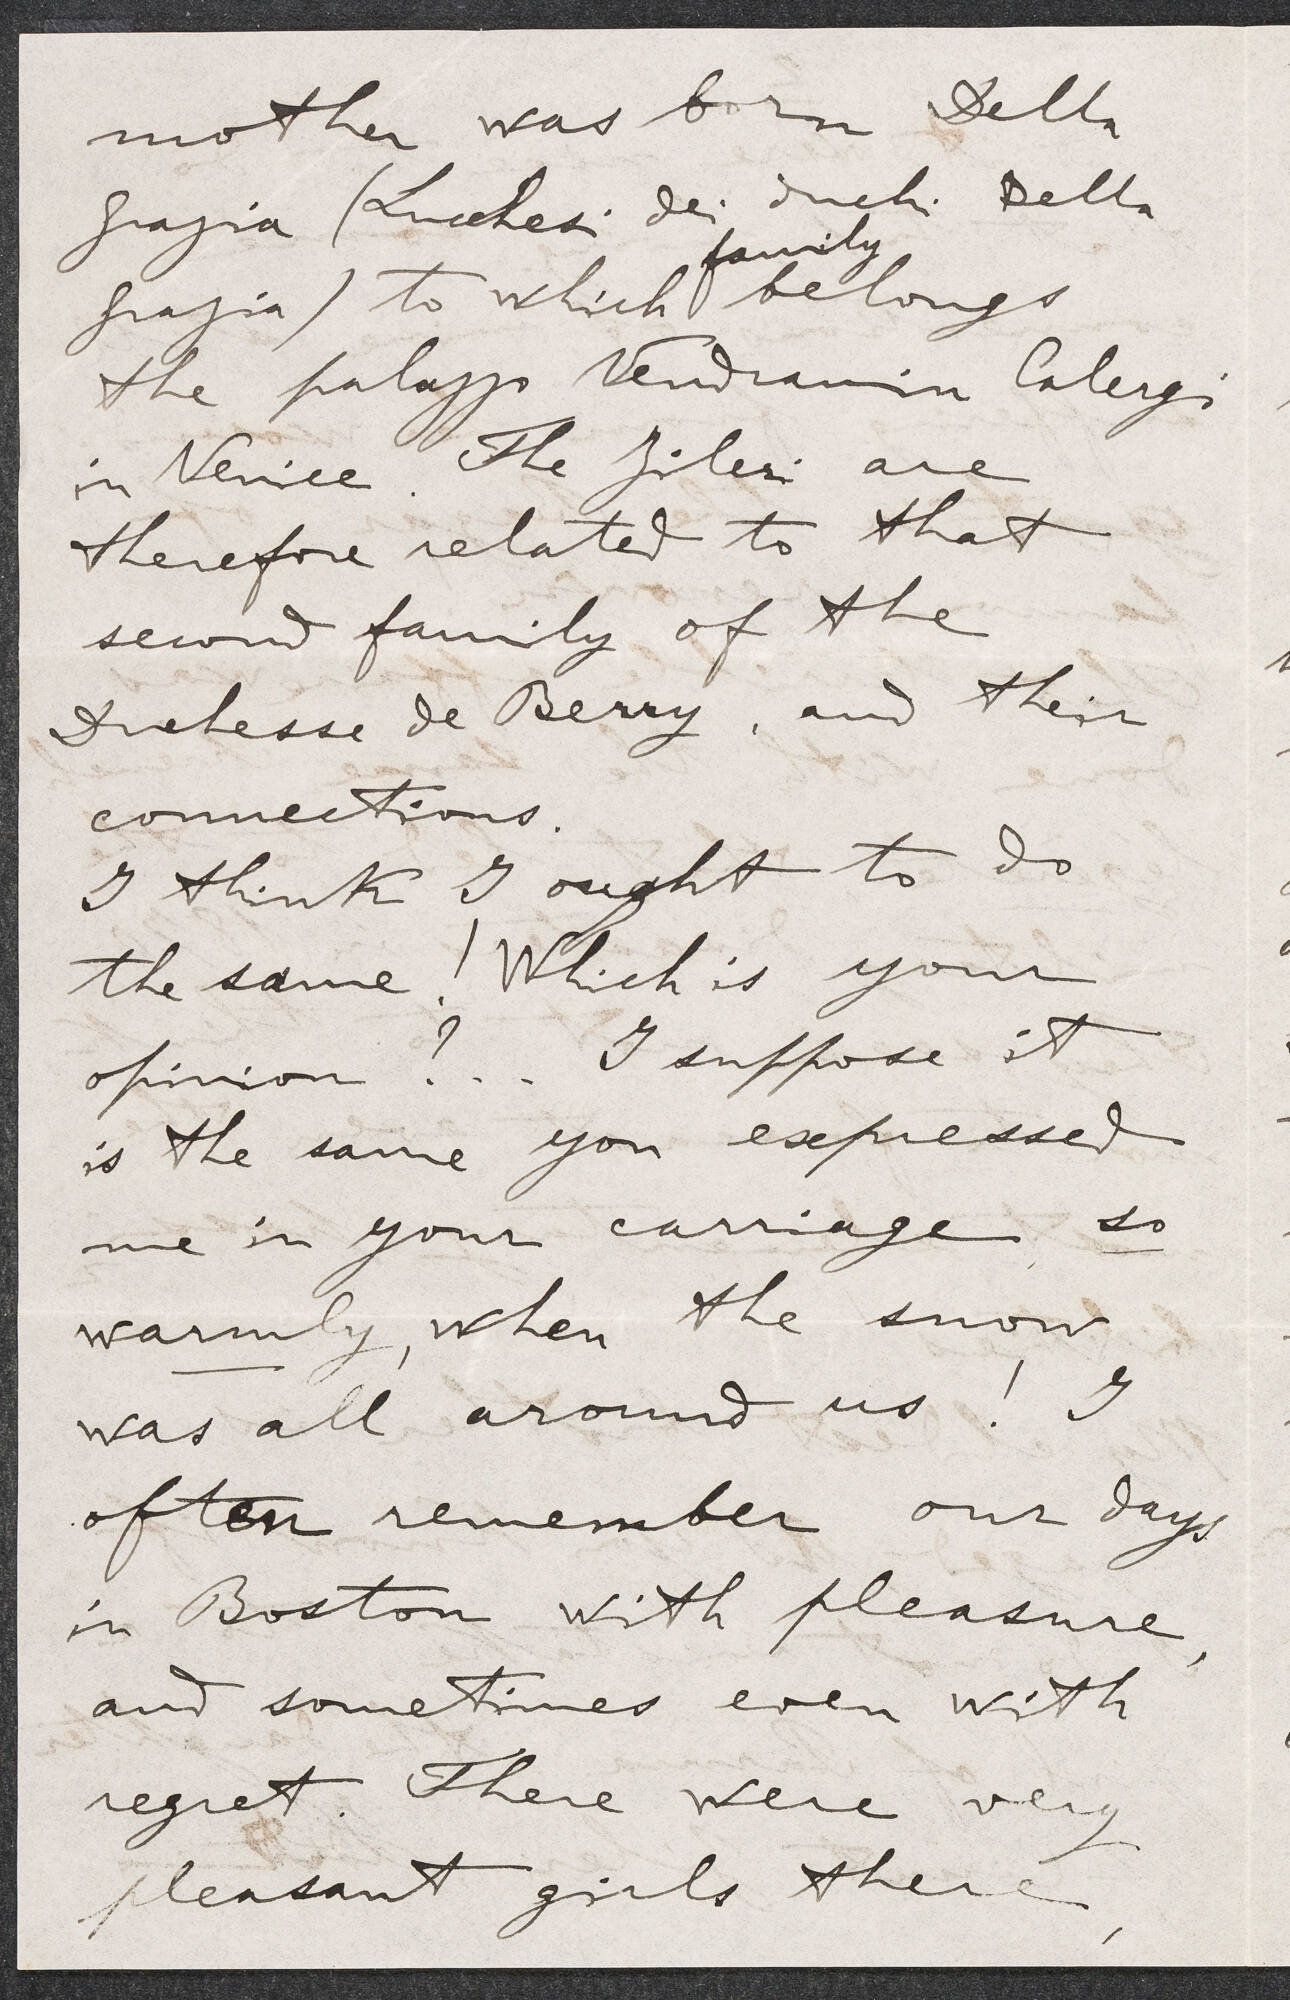 mother was born Della
Grazia (Lucchesi dei duchi Della
family
Grazia) to which belongs
the palazzo Vendramin Calergi
in Venice. The Zileri are
therefore related to that
second family of the
Duchesse de Berry, and their
connections.
I think I ought to do
the same! Which is your
opinion?... I suppose it
is the same you expressed
me in your carriage, so
warmly, when the snow
was all around us! I
often remember our days
in Boston with pleasure,
and sometimes even with
regret. There were very
pleasant girls there,